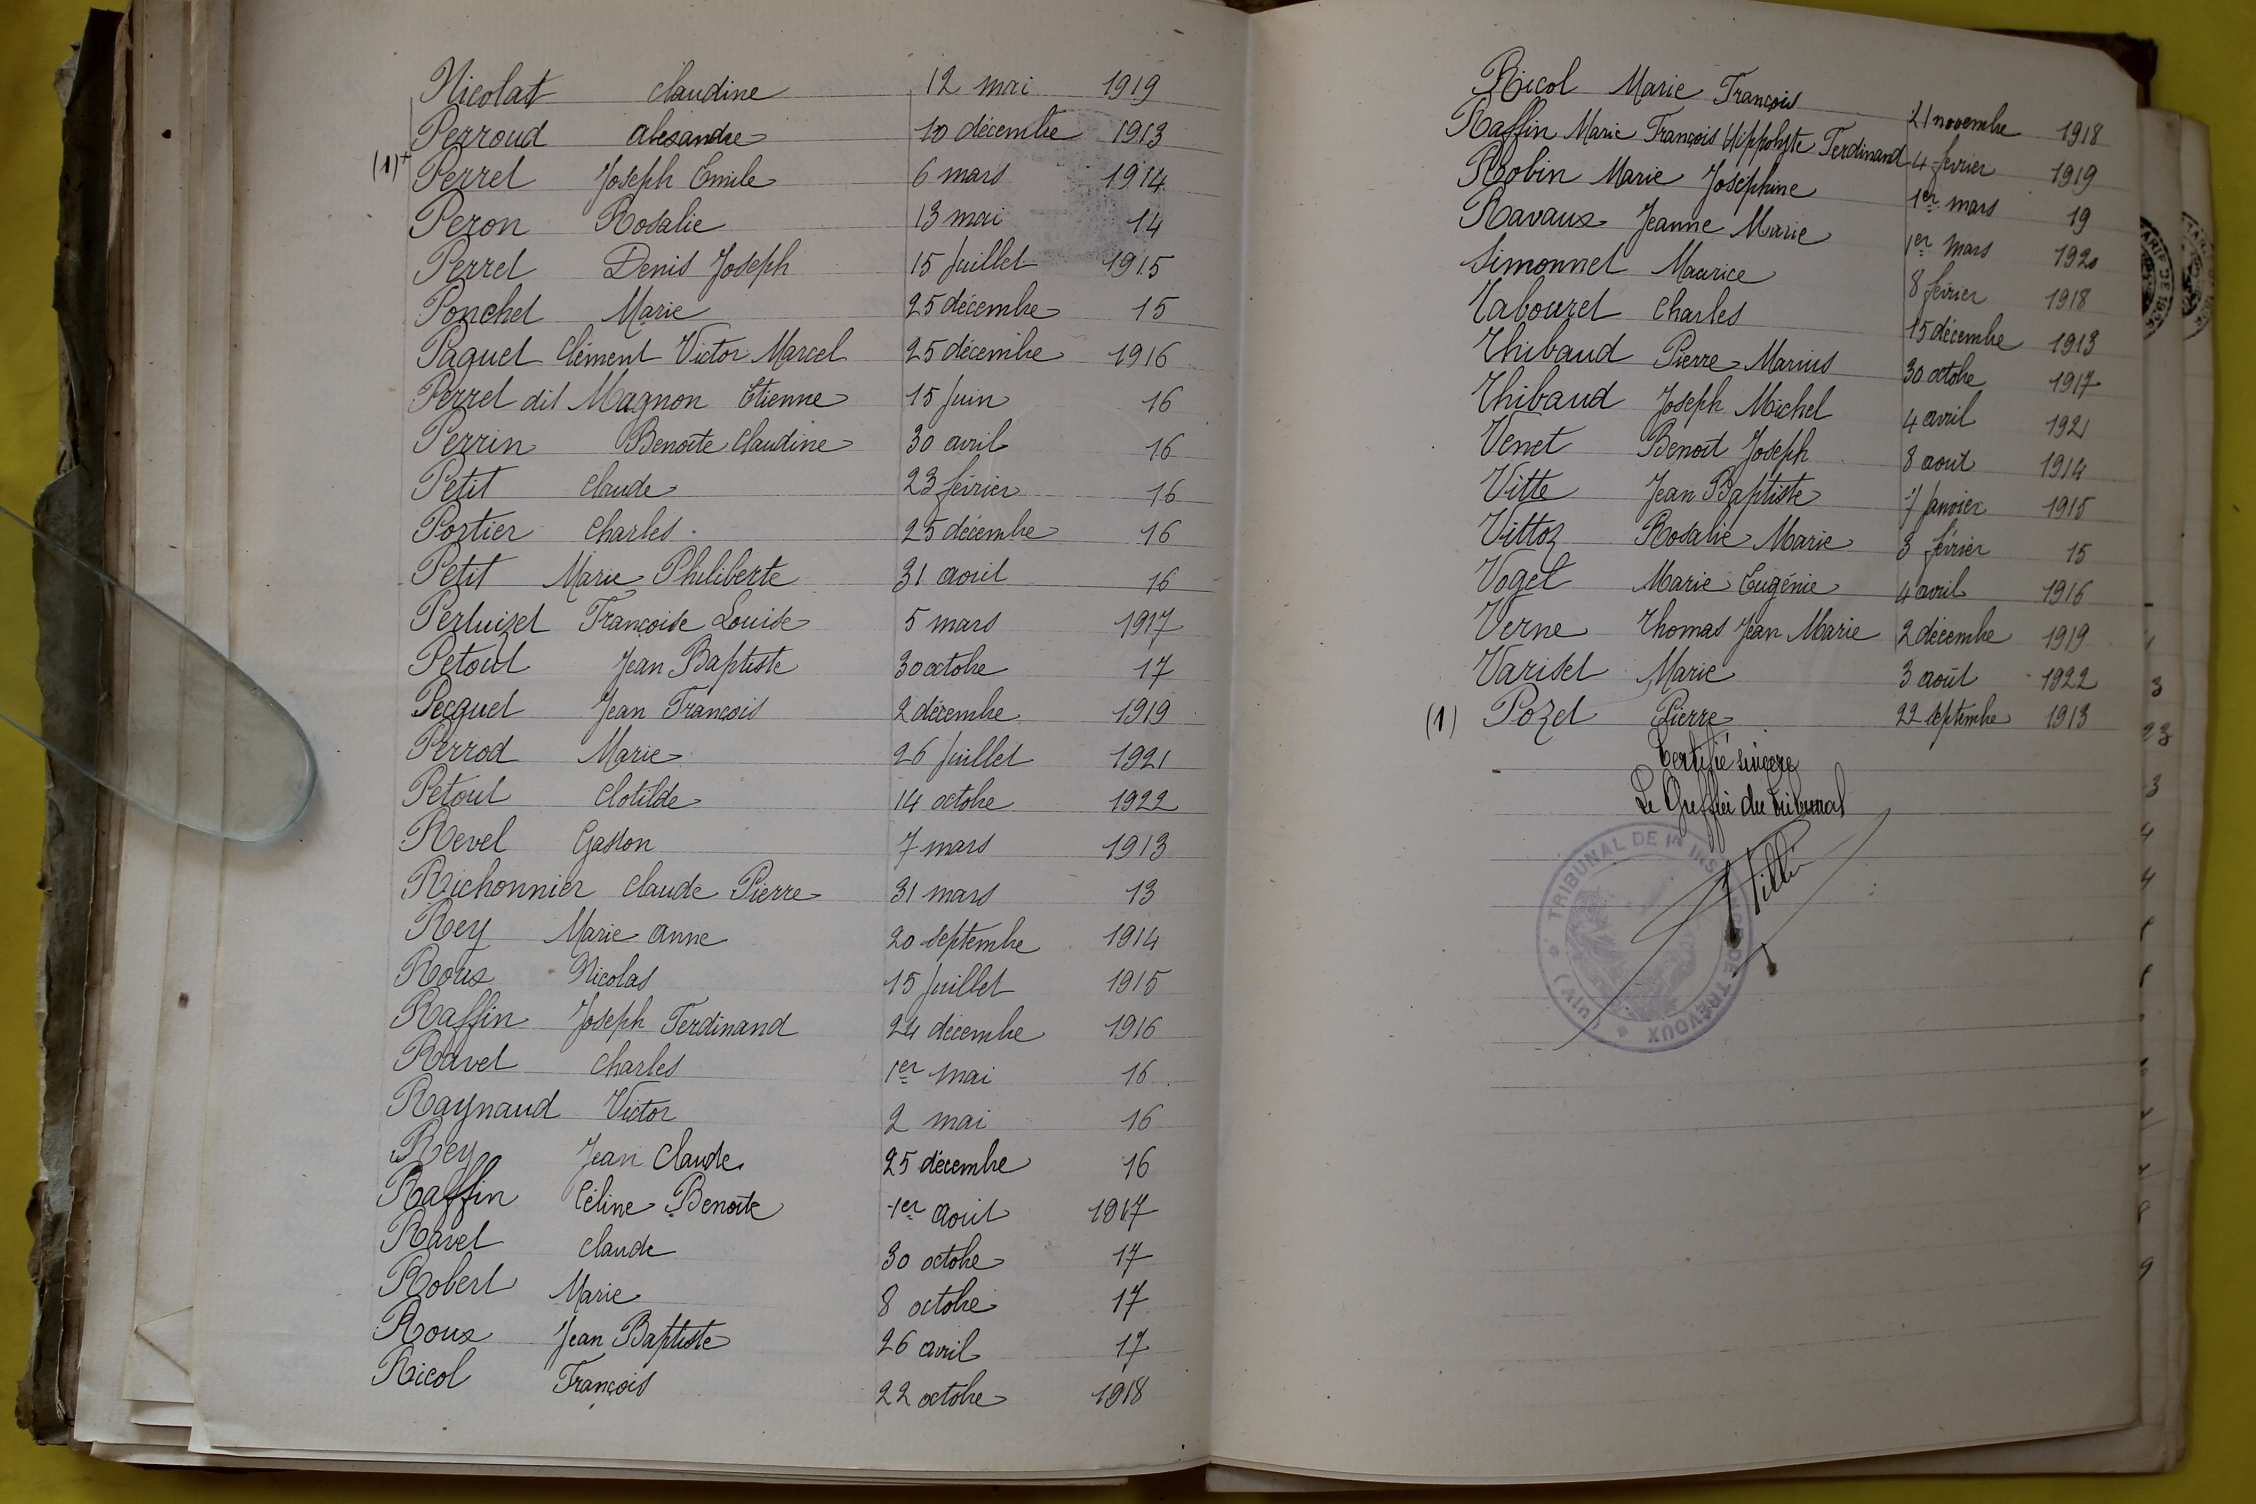 Nicolat Claudine 12 mai 1919
Perroud Alexandre 10 décembre 1913
(1)+ Perret Joseph Emile 6 mars 1914
Peron Rosalie 13 mai 14
Perret Denis Joseph 15 Juillet 1915
Ponchet Marie 25 décembre 15
Paquet Clément Victor Marcel 25 décembre 1916
Perret dit Magnon Etienne 15 Juin 16
Perrin Benoite Claudine 30 avril 16
Petit Claude 23 février 16
Portier Charles 25 décembre 16
Petit Marie Philiberte 31 aout 16
Pertuizet Françoise Louise 5 mars 1917
Petout Jean Baptiste 30 octobre 17
Pecquet Jean François 2 décembre 1919
Perrod Marie 26 Juillet 1921
Petout Clotilde 14 octobre 1922
Revel Gaston 7 mars 1913
Richonnier Claude Pierre 31 mars 13
Rey Marie Anne 20 septembre 1914
Roux Nicolas 15 Juillet 1915
Raffin Joseph Ferdinand 24 décembre 1916
Ravet Charles 1er mai 16
Raynaud Victor 2 mai 16
Rey Jean Claude 25 décembre 16
Raffin Céline Benoite 1er aout 1917
Ravet Claude 30 octobre 17
Robert Marie 8 octobre 17
Roux Jean Baptiste 26 avril 17
Ricol François 22 octobre 1918
Ricol Marie François 21 novembre 1918
Raffin Marie François Hippolyte Ferdinand 4 février 1919
Robin Marie Joséphine 1er mars 19
Ravaux Jeanne Marie 1er mars 1920
Simonnet Maurice 8 février 1918
Tabouret Charles 15 décembre 1913
Thibaud Pierre Marius 30 octobre 1917
Thibaud Joseph Michel 4 avril 1921
Venet Benoit Joseph 8 aout 1914
Vitte Jean Baptiste 7 Janvier 1915
Vittoz Rosalie Marie 3 février 15
Voget Marie Eugénie 4 avril 1916
Verne Thomas Jean Marie 2 décembre 1919
Variset Marie 3 août 1922
(1) Pozet Pierre 22 septembre 1913
Certifié sincère
Le Greffier du tribunal
TRIBUNAL DE 1re INS DE TRÉVOUX (AIN)